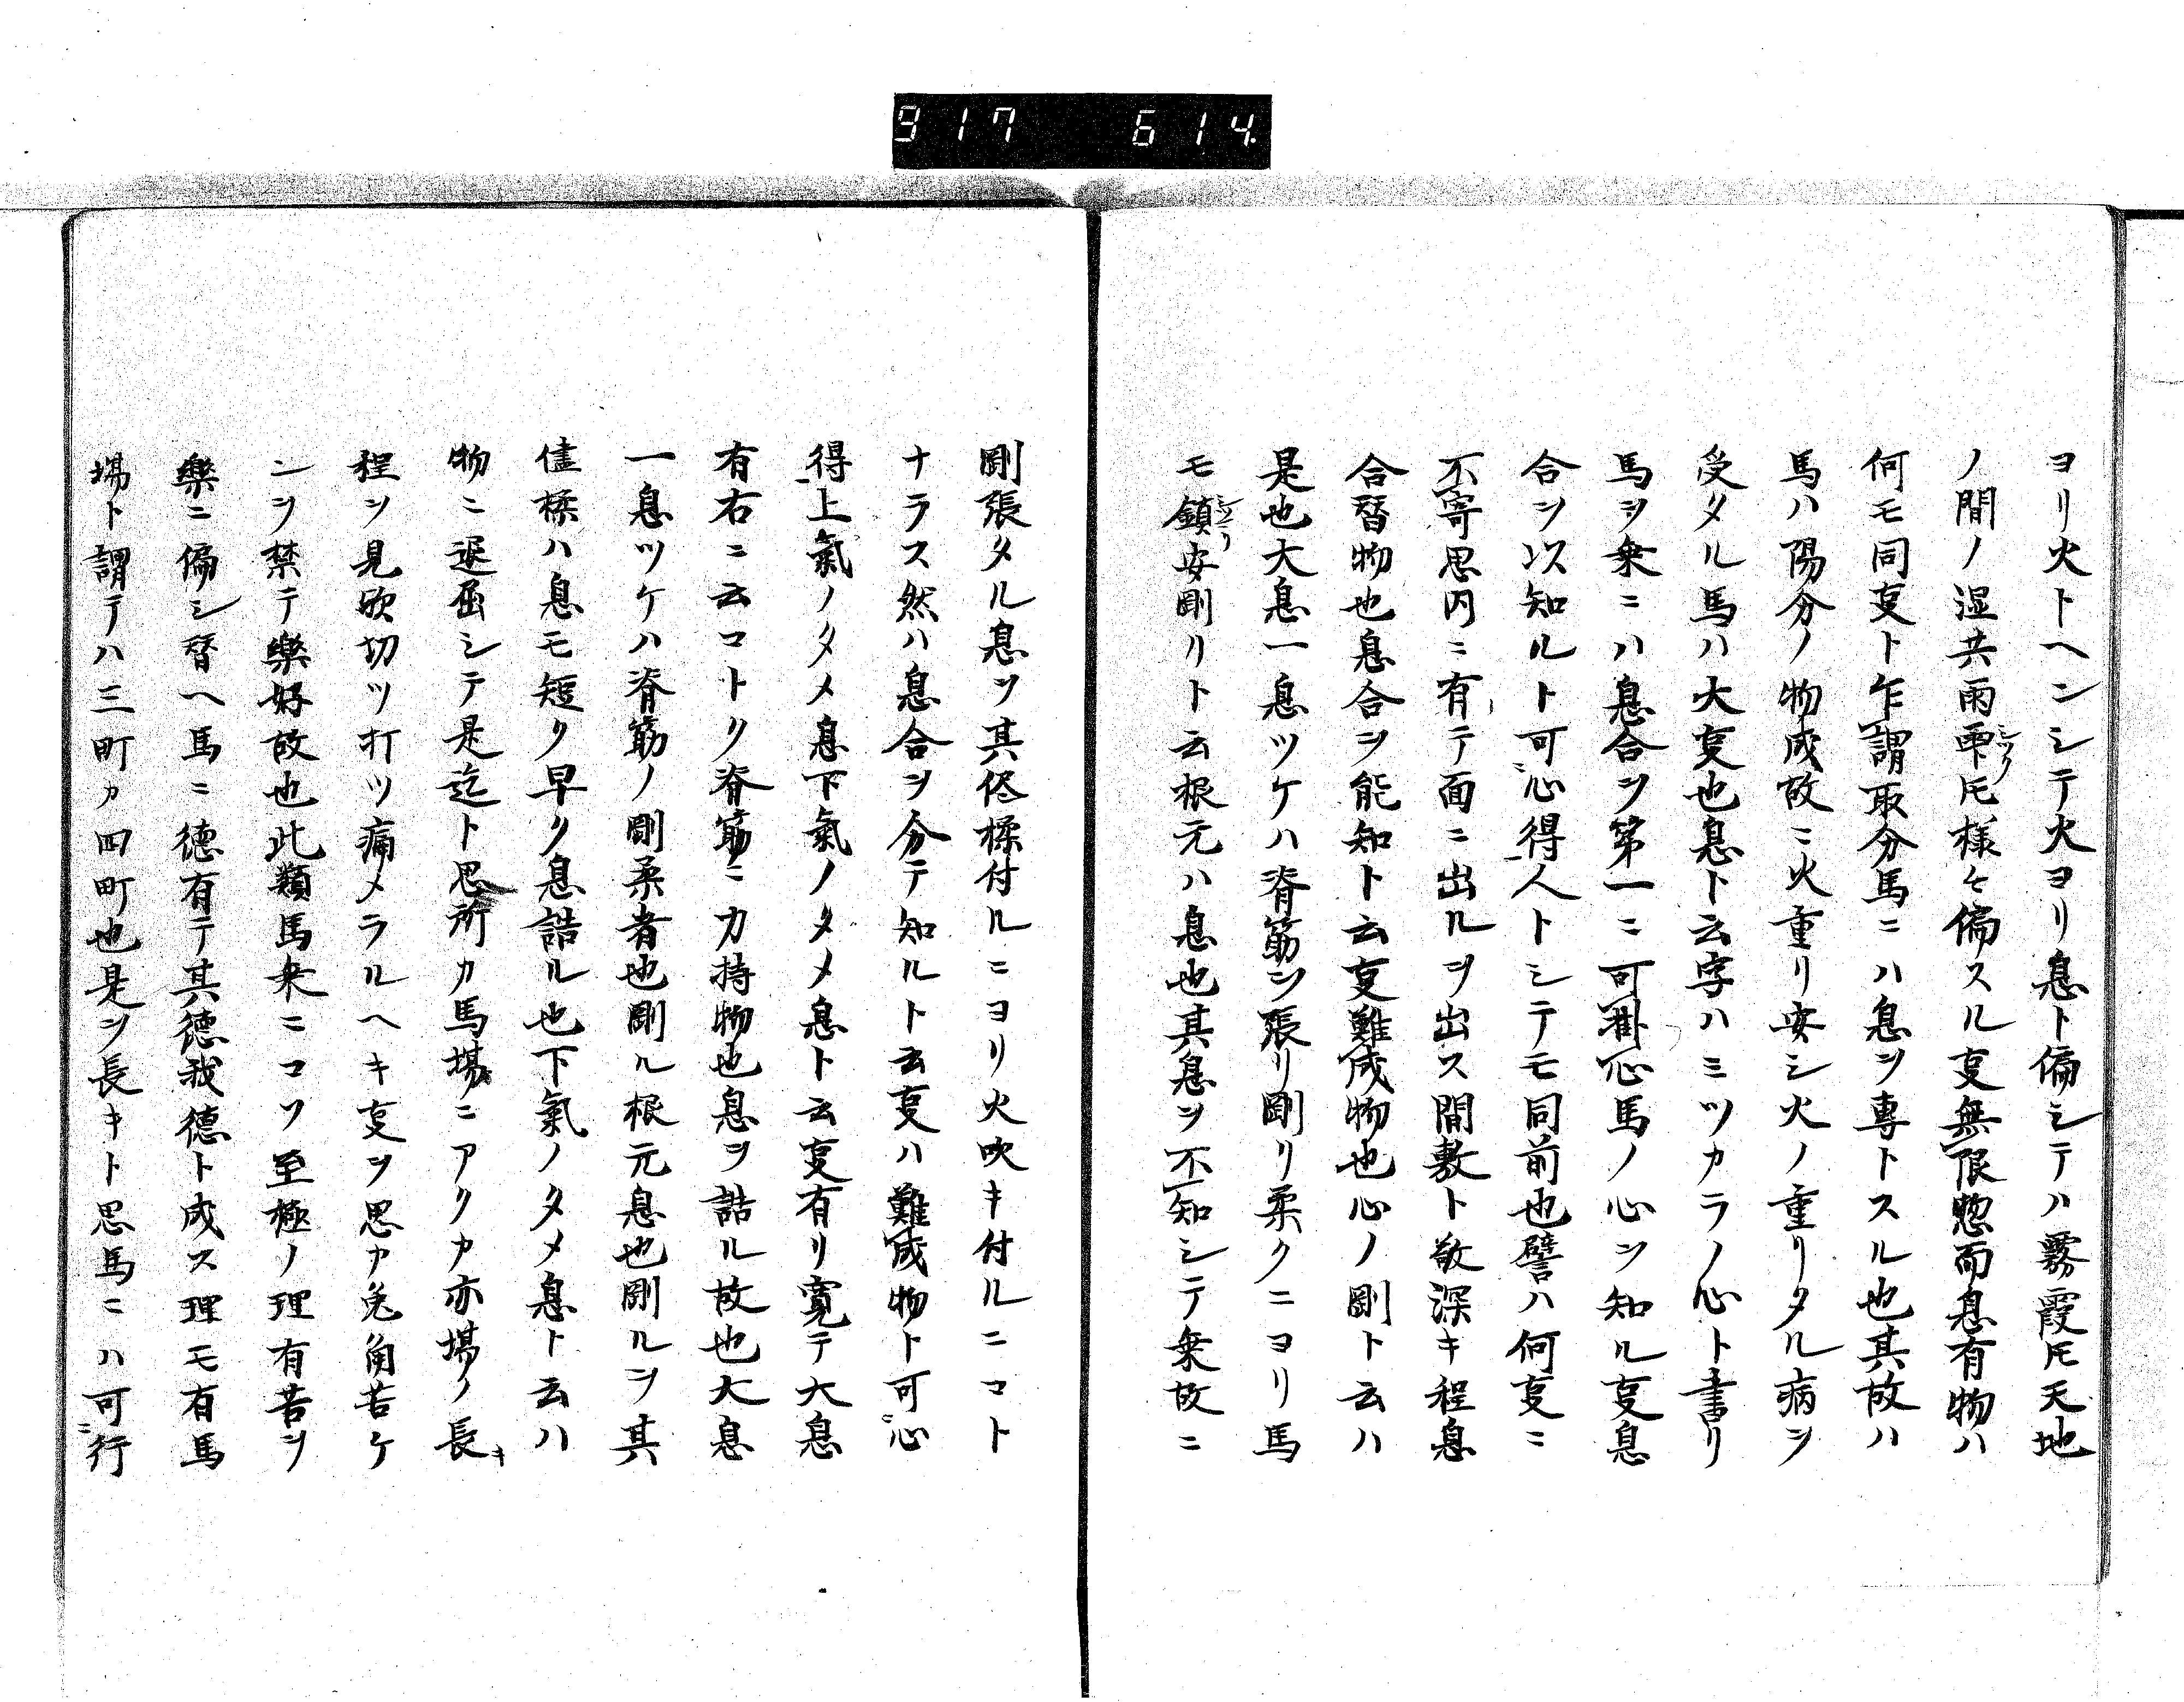 917 614.
ヨリ火トヘンシテ火ヨリ息ト偏シテハ霧霞㞮天地
ノ間ノ湿共雨雫㞮様々偏スル叓無限惣而息有物ハ
何モ同叓ト乍謂取分馬ニハ息ヲ専トスル也其故ハ
馬ハ陽分ノ物成故ニ火重リ安シ火ノ重リタル病ヲ
受タル馬ハ大叓也息ト云字ハミツカラノ心ト書リ
馬ヲ乗ニハ息合ヲ第一ニ可掛心馬ノ心ヲ知ル叓息
合ヲ以知ルト可心得人トシテモ同前也譬ハ何叓ニ
不寄思内ニ有テ面ニ出ルヲ出ス間敷ト敬深キ程息
合替物也息合ヲ能知ト云叓難成物也心ノ剛ト云ハ
是也大息一息ツケハ脊筋ヲ張リ剛リ柔クニヨリ馬
モ鎮安剛リト云根元ハ息也其息ヲ不知シテ乗故ニ
剛張タル息ヲ其侭揉付ルニヨリ火吹キ付ルニコト
ナラス然ハ息合ヲ分テ知ルト云叓ハ難成物ト可心
得上氣ノタメ息下氣ノタメ息ト云叓有リ寛テ大息
有右ニ云コトク脊筋ニ力持物也息ヲ詰ル故也大息
一息ツケハ脊筋ノ剛柔者也剛ル根元息也剛ルヲ其
儘揉ハ息モ短ク早ク息詰ル也下氣ノタメ息ト云ハ
物ニ退屈シテ是迄ト思所カ馬場ニアクカ亦場ノ長キ
程ヲ見欤切ツ打ツ痛メラルヘキ叓ヲ思カ兎角苦ケ
ンヲ禁テ樂好故也此類馬乗ニコソ至極ノ理有苦ヲ
樂ニ偏シ替ヘ馬ニ徳有テ其徳我徳ト成ス理モ有馬
場ト謂テハ三町カ四町也是ヲ長キト思馬ニハ可行